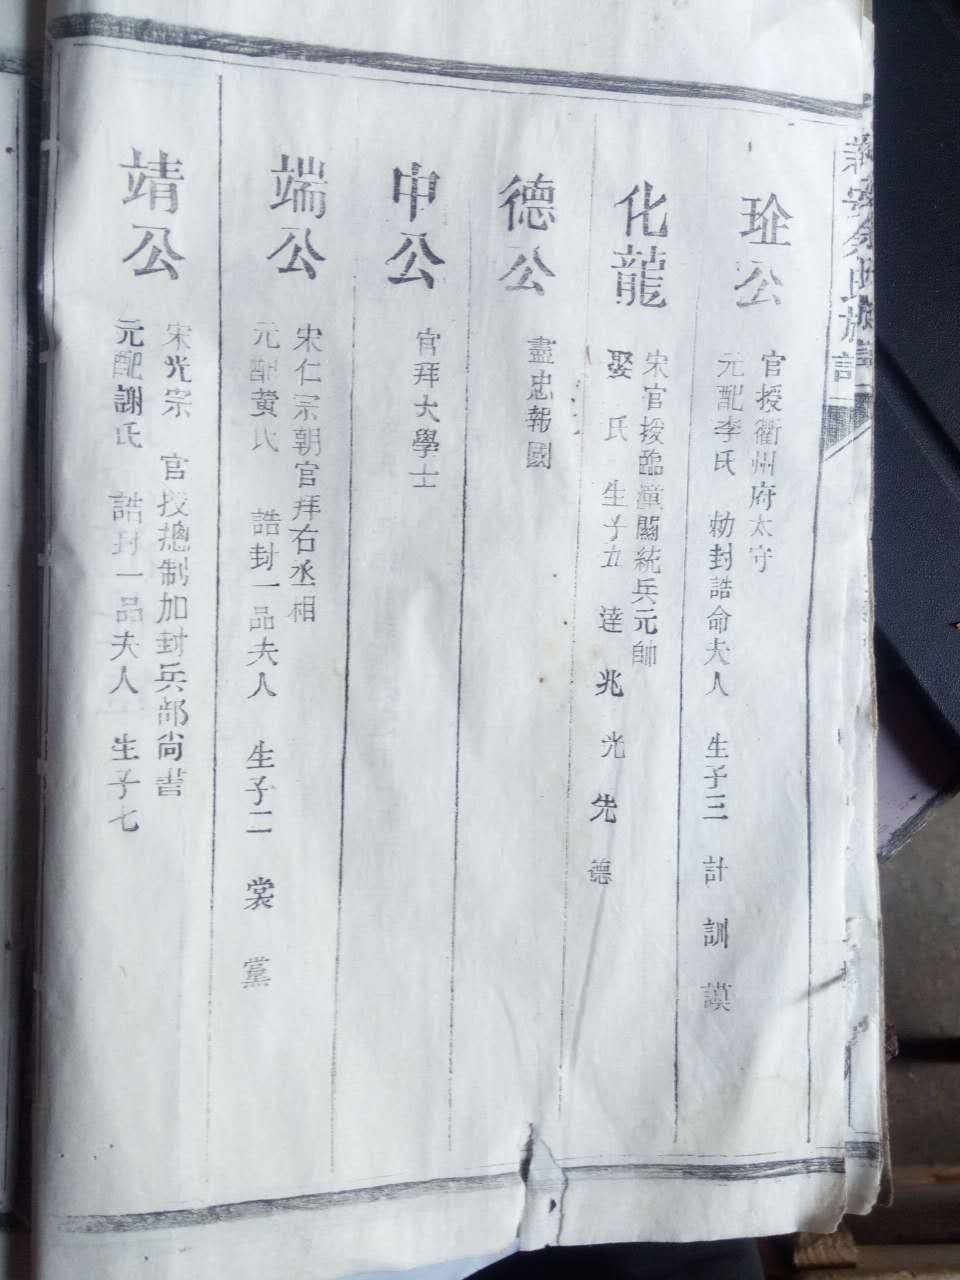 余氏族譜
玭公
官授衢州府太守
元配李氏 勅封誥命夫人 生子三 計 訓 謨
化龍
宋官授臨潼關統兵元帥
娶 氏 生子五 逹 兆 光 先 德
德公
盡忠報國
申公
官拜大學士
端公
宋仁宗朝官拜右丞相
元配黄氏 誥封一品夫人 生子二 裳 黨
靖公
宋光宗 官授總制加封兵部尚書
元配謝氏 誥封一品夫人 生子七